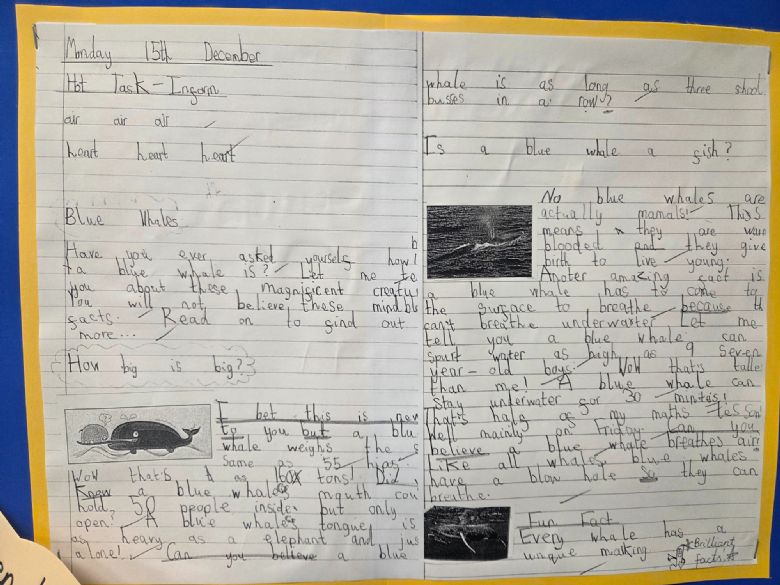 Monday 15th December
Hot Task - Inform
air air air
heart heart heart
Blue Whales
b
Have you ever asked yourself how
a blue whale is? Let me te
you about these magnificent creatu
You will not believe these mind blo
facts. Read on to find out
more...
How big is big?
I bet this is new
to you but a blu
whale weighs the s
same as 55
Wow that's as tons! Did
Know a blue whales mouth cou
hold 50 people inside but only
open? A blue whales tongue is
as heavy as a elephant and jus
alone! Can you believe a blue
whale is as long as three shool
busses in a row?
Is a blue whale a fish?
No blue whales are
actually mamals! This
means they are warm
blooded and they give
birth to live young.
Anoter amazing fact is
a blue whale has to come to
the surface to breathe because th
can't breathe underwarter Let me
tell you a blue whale can
spurt water as high as 9 seven
year-old boys. Wow that's talle
than me! A blue whale can
stay underwater for 30 mintes!
That's half of my maths lesson
Well mainly on Friday. Can you
believe a blue whale breathes air?
Like all whales blue whales
have a blow hole so they can
breathe.
Fun Fact
Every whale has a
unique marking
Brilliant
facts